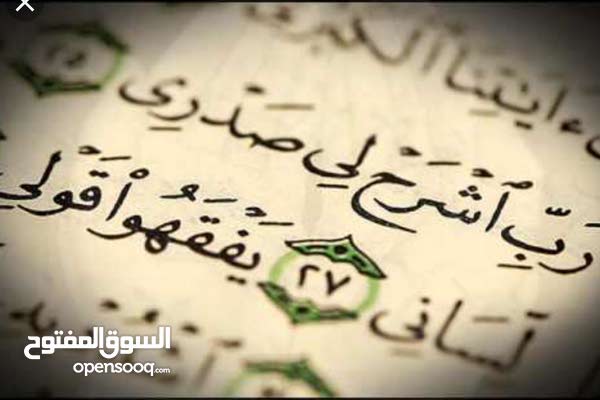 ءَايَٰتِنَا ٱلْكُبْرَى
رَبِّ ٱشْرَحْ لِي صَدْرِي ٢٥
لِّسَانِي ٢٧ يَفْقَهُوا۟ قَوْلِي
السوق المفتوح
opensooq.com